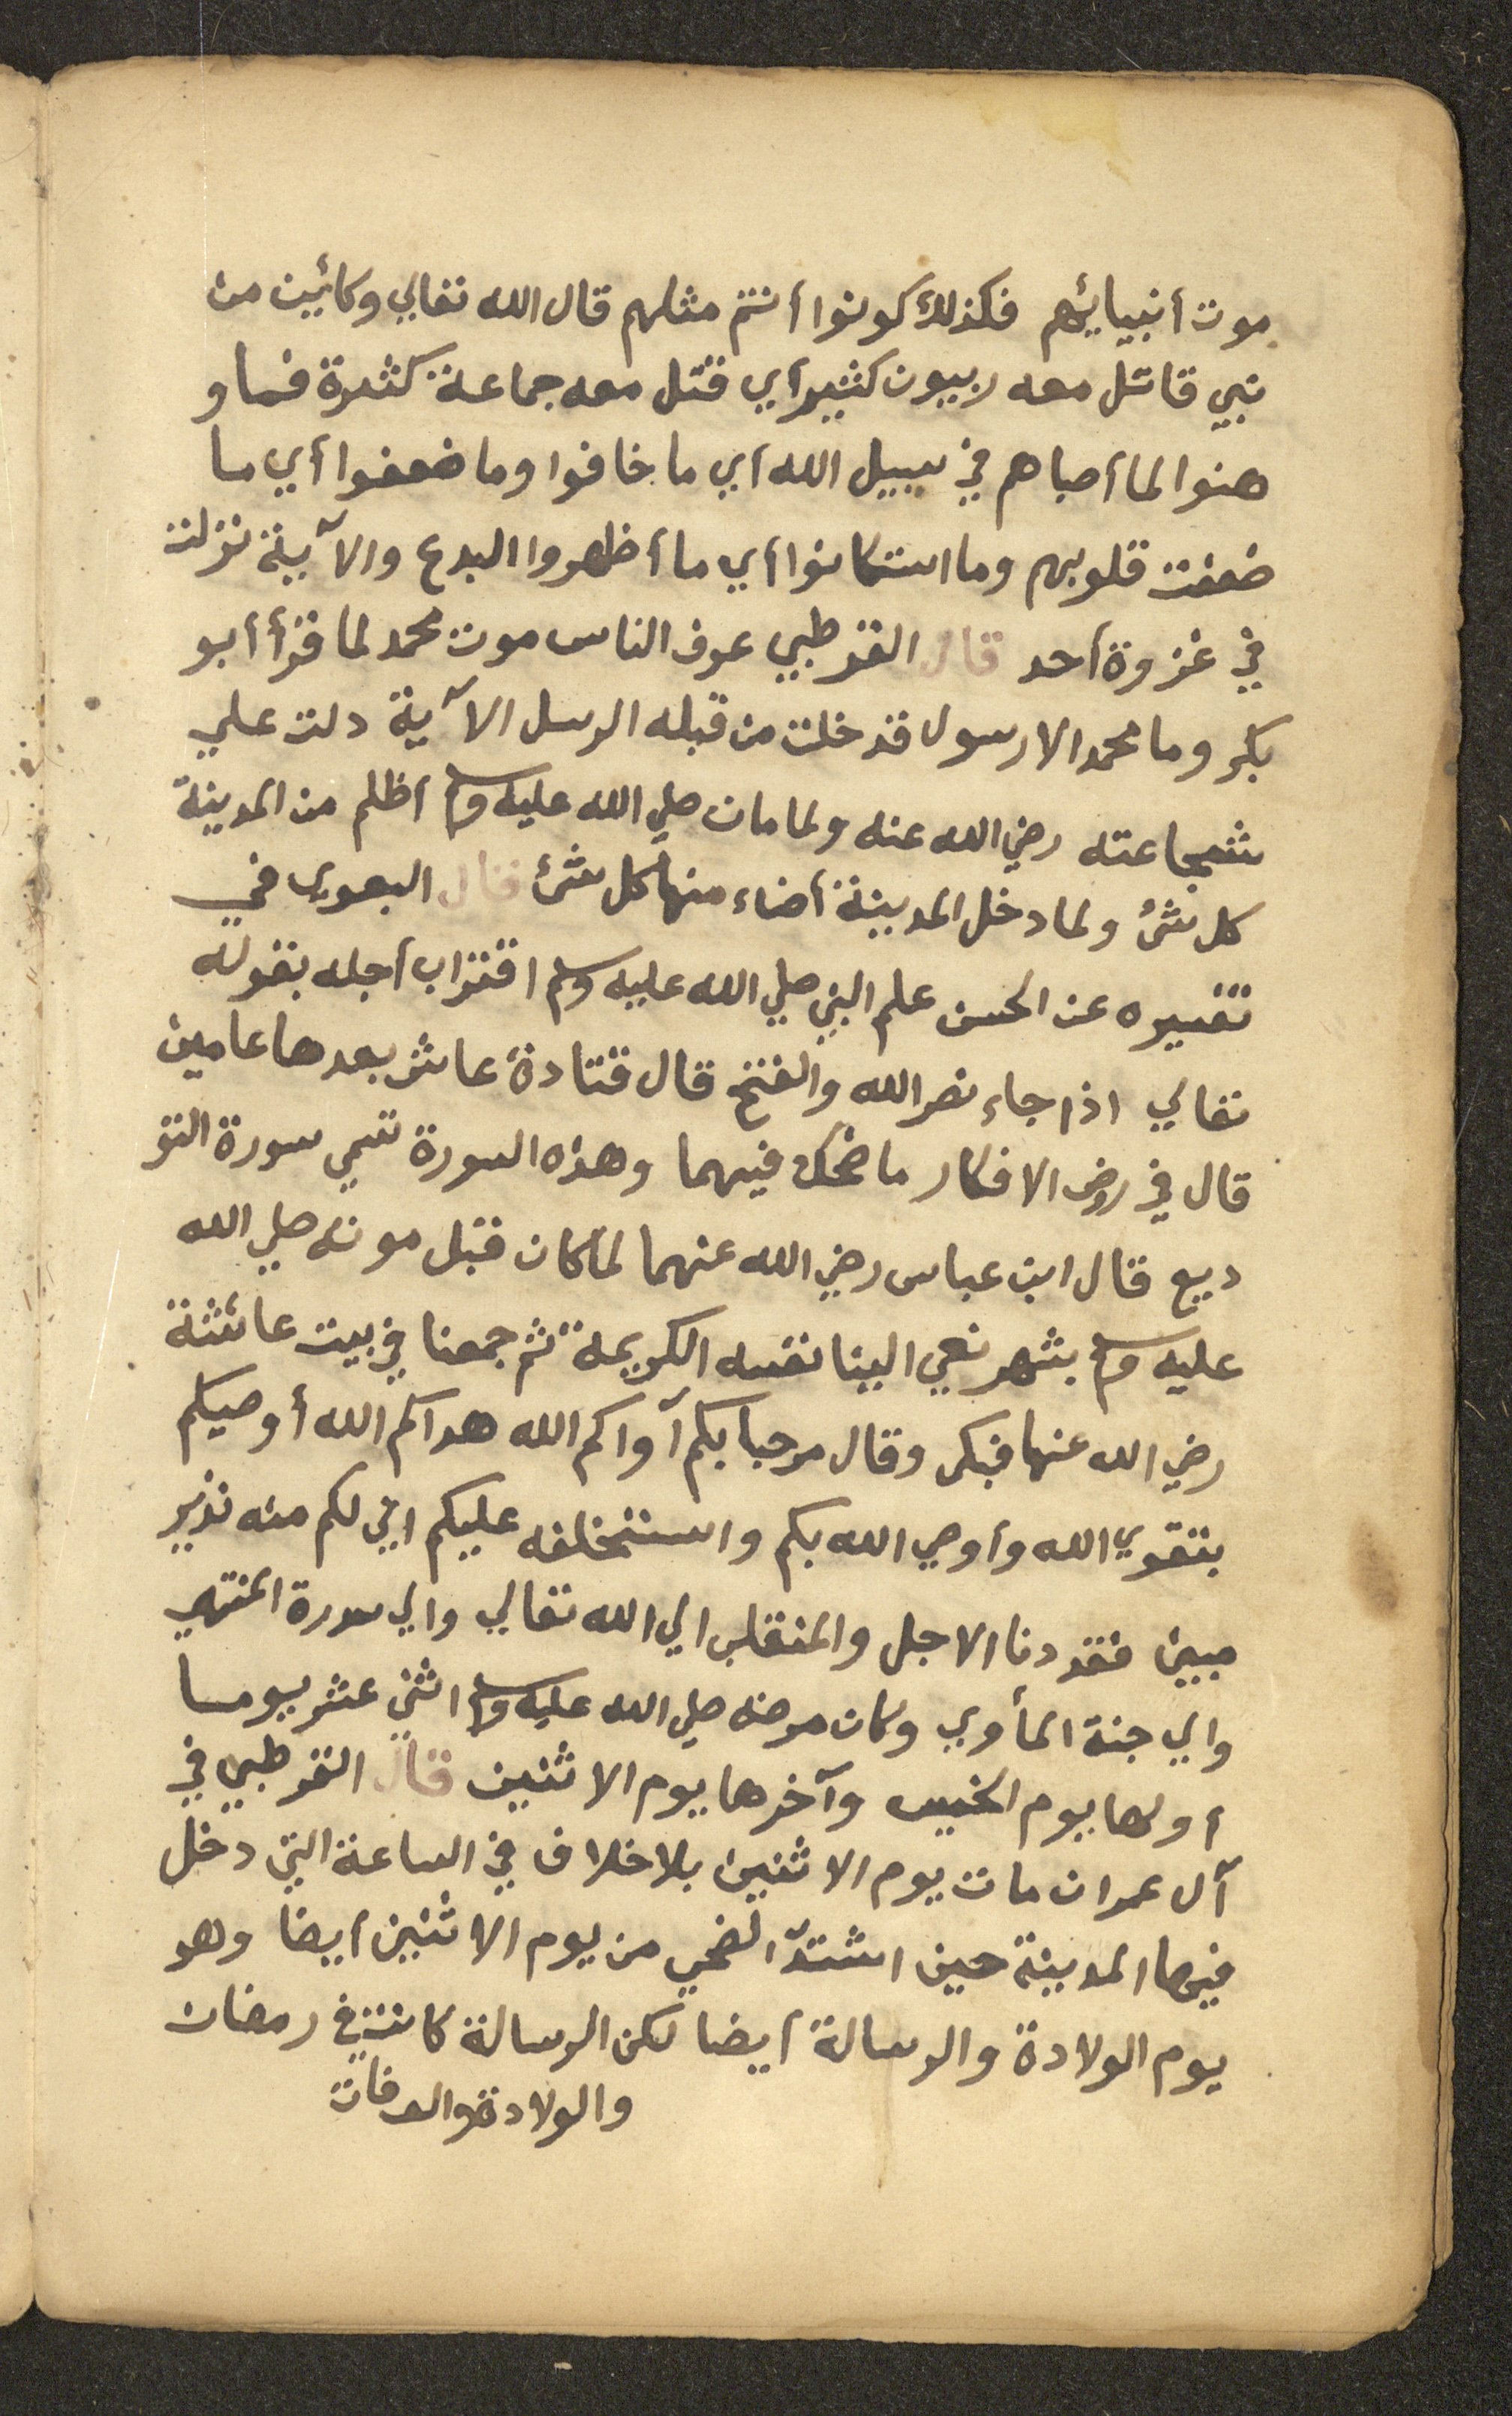 موت أنبيائهم فكذلك كونوا أنتم مثلهم قال الله تعالي وكائين من
نبي قاتل معه ربيون كثير أي قتل معه جماعة كثيرة فما و
هنوا لما أصابهم في سبيل الله أي ما خافوا وما ضعفوا أي ما
ضعفت قلوبهم وما استكانوا أي ما أظهروا البدع والآية نزلت
في غزوة أحد قال القرطبي عرف الناس موت محمد لما قرأ أبو
بكر وما محمد الا رسول قد خلت من قبله الرسل الآية دلت علي
شجاعته رضي الله عنه ولما مات صلي الله عليه وسلم أظلم من المدينة
كل شئ ولما دخل المدينة أضاء منها كل شئ قال البغوي في
تفسيره عن الحسن علم النبي صلي الله عليه وسلم اقتراب أجله بقوله
تعالي اذا جاء نصر الله والفتح قال قتادة عاش بعدها عامين
قال في روض الافكار ما ضحك فيهما وهذه السورة تسمي سورة التو
ديع قال ابن عباس رضي الله عنهما لما كان قبل موته صلي الله
عليه وسلم بشهر نعي الينا نفسه الكريمة ثم جمعنا في بيت عائشة
رضي الله عنها فبكى وقال مرحبا بكم آواكم الله هداكم الله أوصيكم
بتقوي الله وأوصي الله بكم واستخلفه عليكم اني لكم منه نذير
مبين فقد دنا الاجل والمنقلب الي الله تعالي والي سدرة المنتهي
والي جنة المأوي وكان مرضه صلي الله عليه وسلم اثني عشر يوما
أولها يوم الخميس وآخرها يوم الاثنين قال القرطبي في
آل عمران مات يوم الاثنين بلا خلاف في الساعة التي دخل
فيها المدينة حين اشتدّ الضحي من يوم الاثنين أيضا وهو
يوم الولادة والرسالة أيضا لكن الرسالة كانت في رمضان
والولادة والوفات